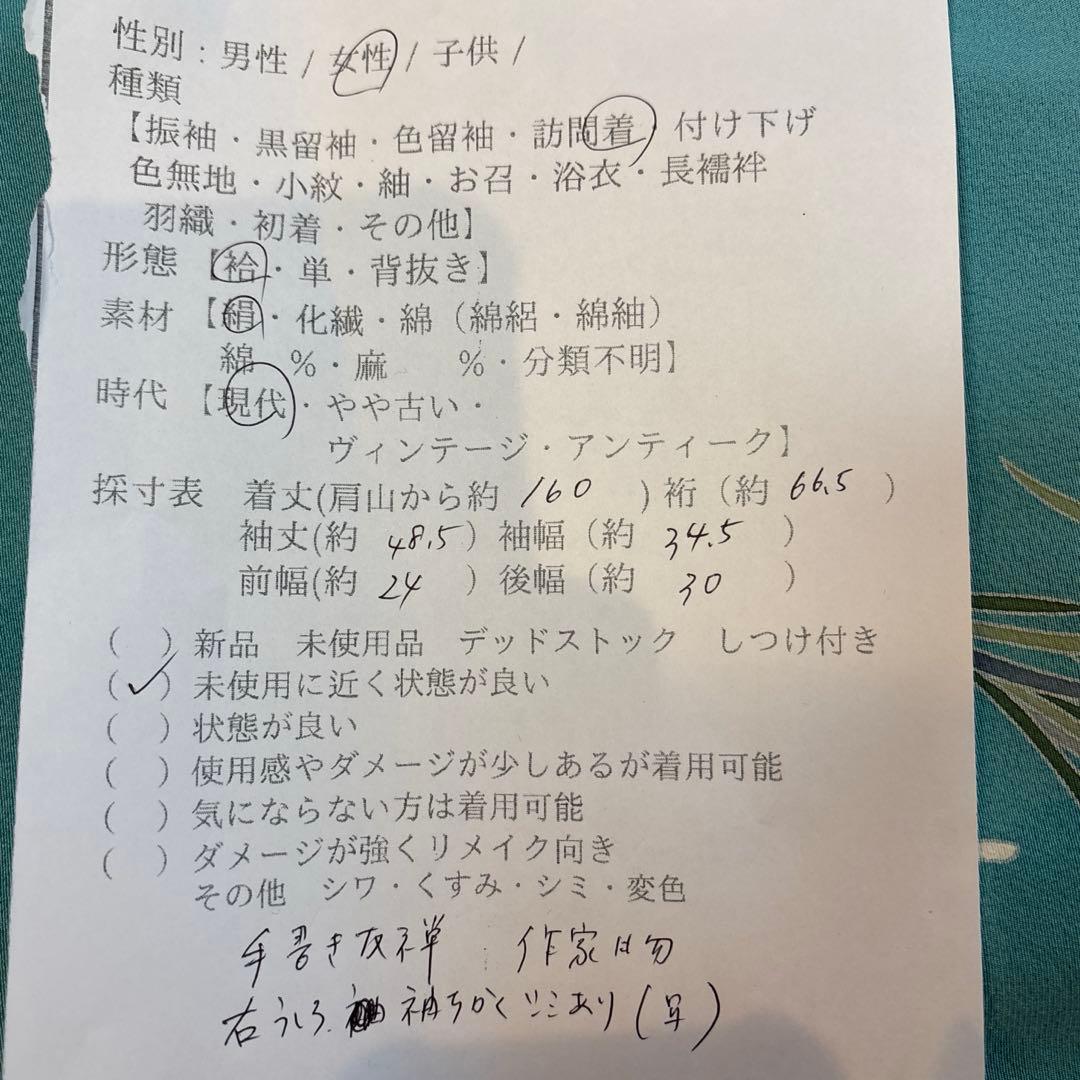 性別：男性 / 女性 / 子供 /
種類
【振袖・黒留袖・色留袖・訪問着・付け下げ
色無地・小紋・紬・お召・浴衣・長襦袢
羽織・初着・その他】
形態 【袷・単・背抜き】
素材 【絹・化繊・綿（綿絽・綿紬）
綿 %・麻 %・分類不明】
時代 【現代・やや古い・
ヴィンテージ・アンティーク】
採寸表 着丈(肩山から約 160 ) 裄（約 66.5 ）
袖丈(約 48.5 ）袖幅（約 34.5 ）
前幅(約 24 ）後幅（約 30 ）
( ) 新品 未使用品 デッドストック しつけ付き
(✓) 未使用に近く状態が良い
( ) 状態が良い
( ) 使用感やダメージが少しあるが着用可能
( ) 気にならない方は着用可能
( ) ダメージが強くリメイク向き
その他 シワ・くすみ・シミ・変色
手書き友禅 作家物
右うしろ 袖ちかくシミあり(写)